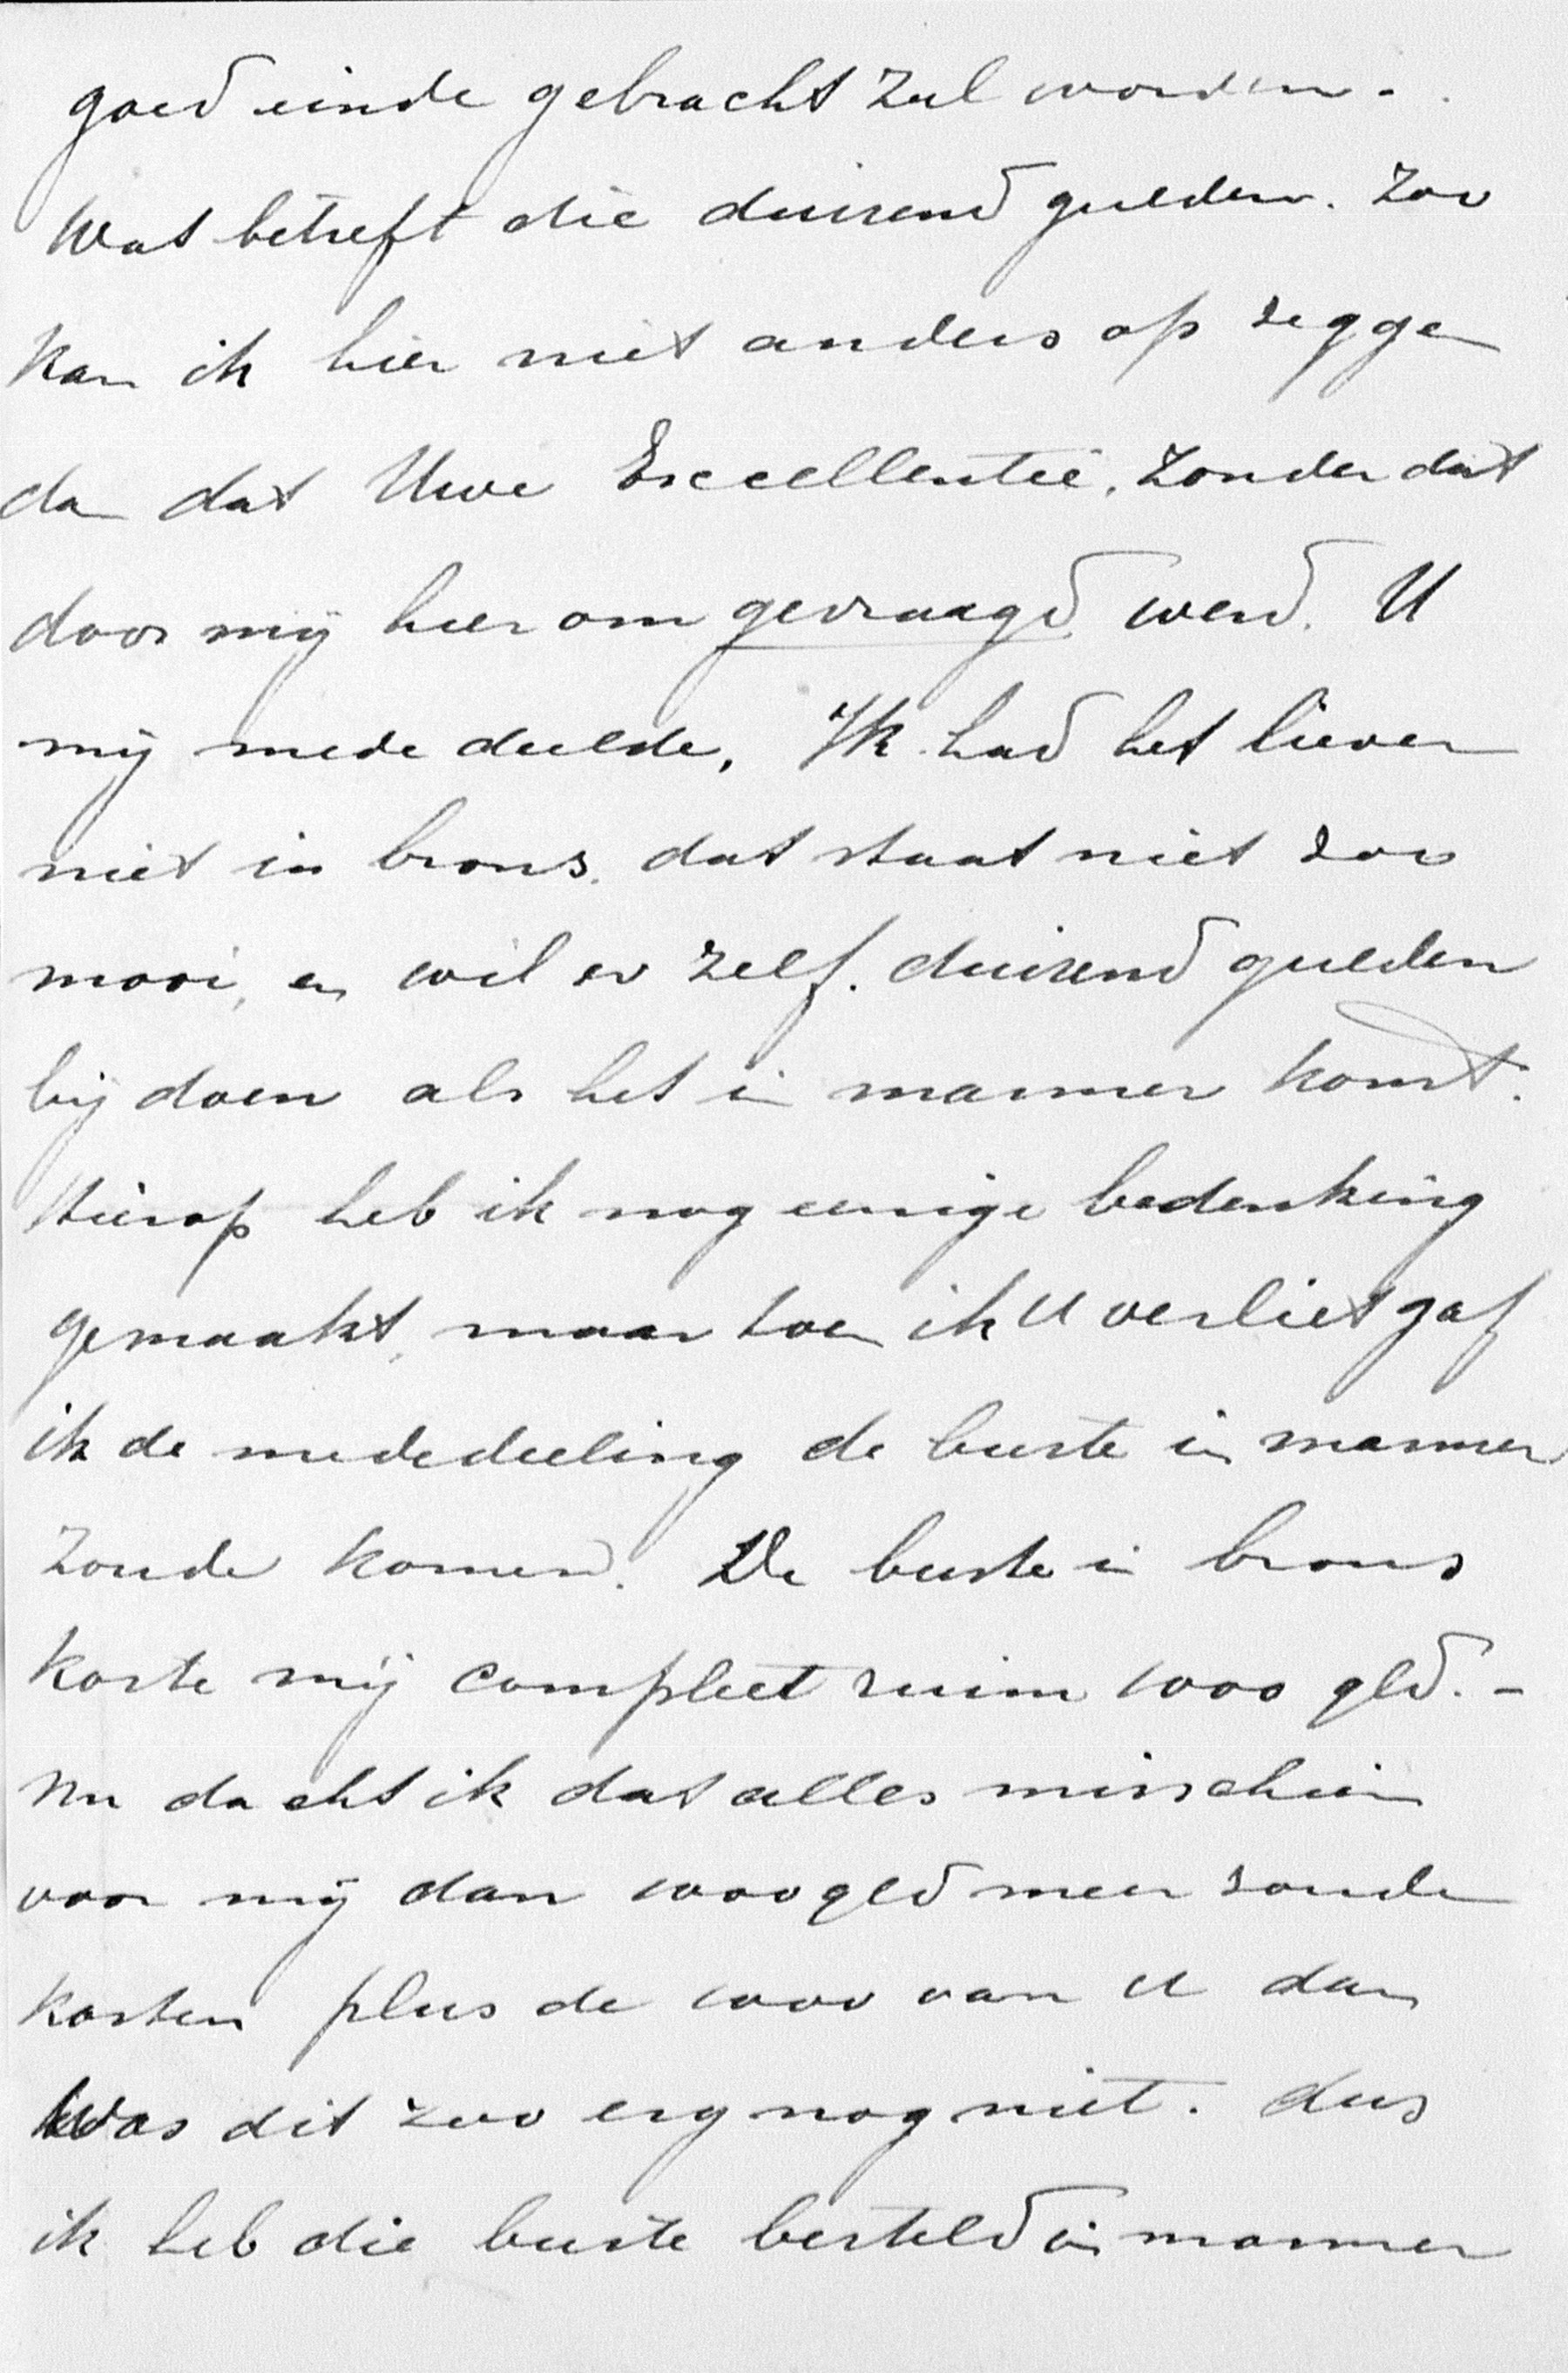 goed einde gebracht zal worden.
Wat betreft die duizend gulden. Zoo
kan ik hier niet anders op zeggen
dan dat Uwe Excellentie, zonder dat
door mij hierom gevraagd werd. U
mij mededeelde, Ik had het liever
niet in brons. dat staat niet zoo
mooi, en wil er zelf. duizend gulden
bij doen als het in marmer komt.
Hierop heb ik nog eenige bedenking
gemaakt, maar toen ik U verliet gaf
ik de mededeeling de buste in marmer
zoude komen. De buste in brons
koste mij compleet ruim 1000 gld. -
Nu dacht ik dat alles misschien
voor mij dan 1000 gld meer zoude
kosten plus de 1000 van U dan
was dit zoo erg nog niet. dus
ik heb die buste besteld in marmer